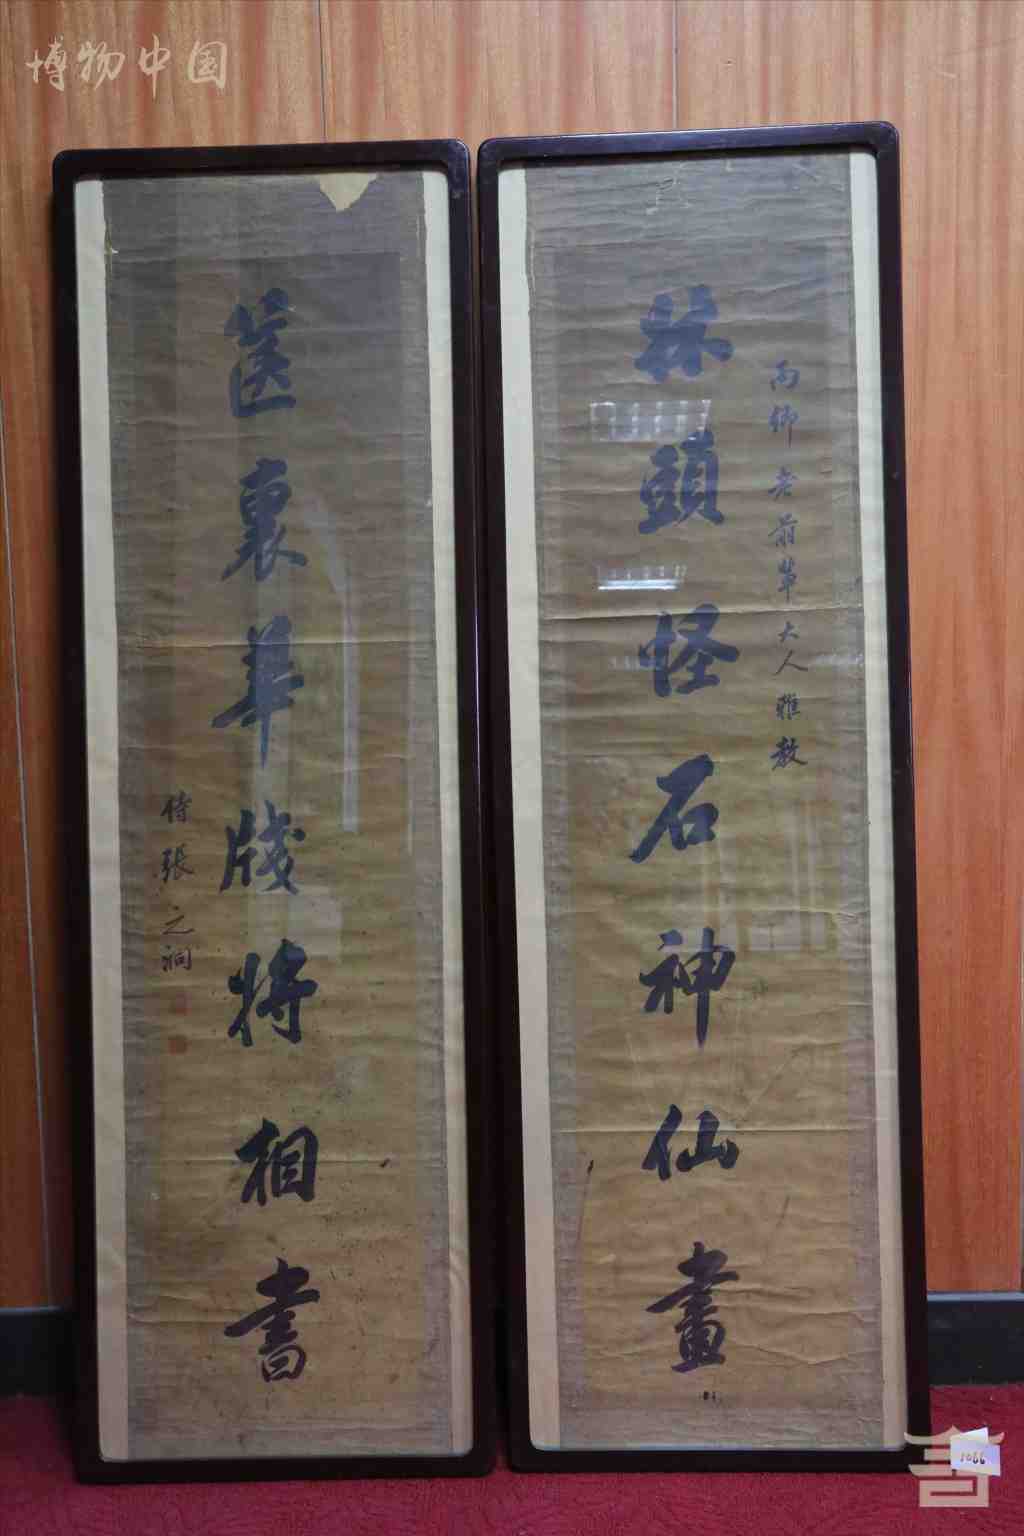 博物中国
牀頭怪石神仙畫
雨卿老前輩大人雅教
篋裏華牋將相書
侍張之洞
1066